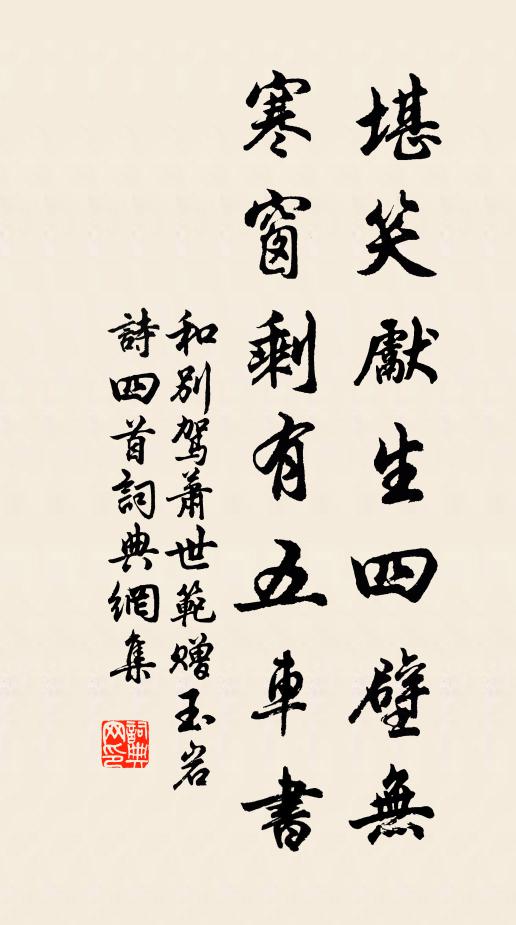 堪笑獻生四壁無
寒窗剩有五車書
和別駕蕭世範贈玉岩
詩四首詞典網集
詞典
网印